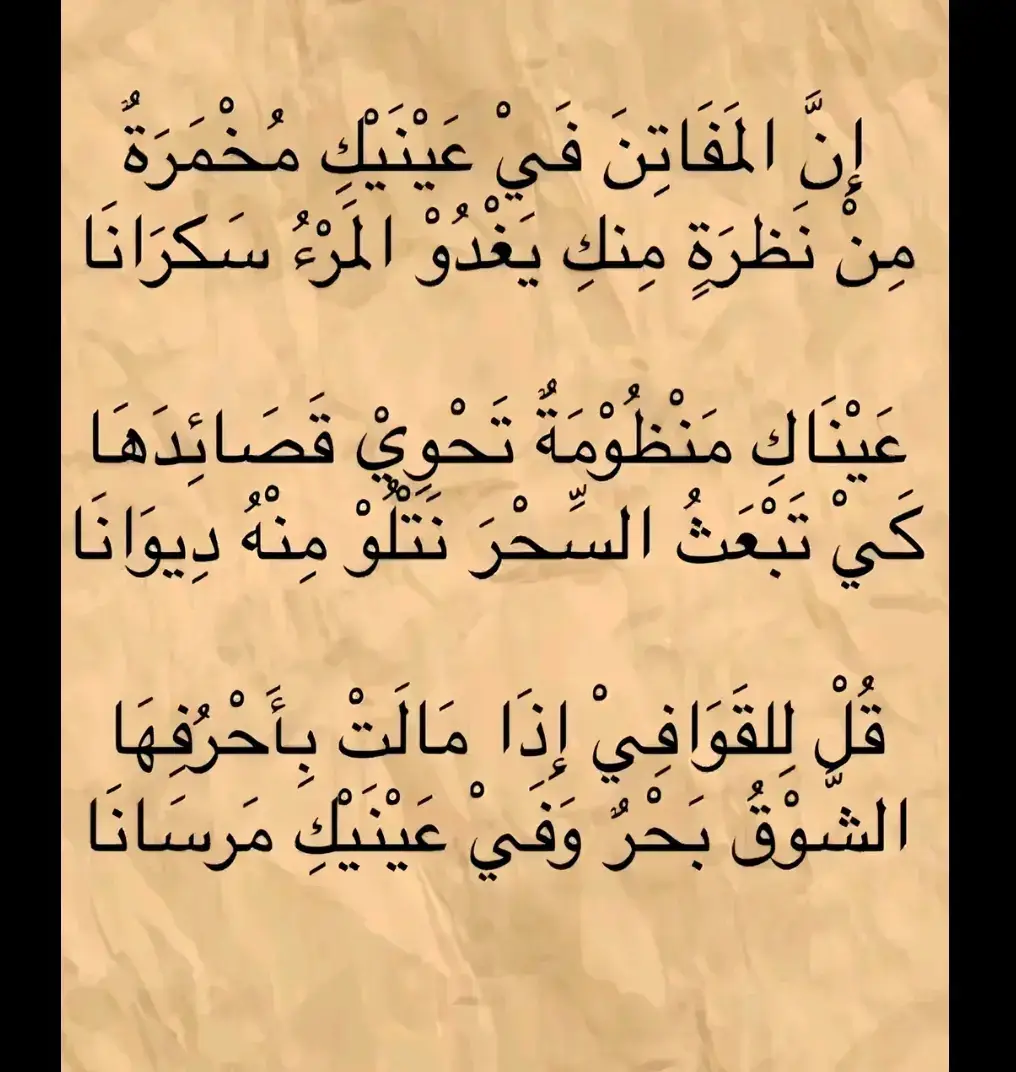 إِنَّ المَفَاتِنَ فَيْ عَيْنَيْكِ مُخْمَرَةٌ
مِنْ نَظرَةٍ مِنكِ يَغْدُوْ المَرْءُ سَكرَانَا
عَيْنَاكِ مَنْظُوْمَةٌ تَحْوِيْ قَصَائِدَهَا
كَيْ تَبْعَثُ السِّحْرَ نَتَلُوْ مِنْهُ دِيوَانَا
قُلْ لِلقَوَافِيْ إِذَا مَالَتْ بِأَحْرُفِهَا
الشَّوْقُ بَحْرٌ وَفَيْ عَيْنَيْكِ مَرسَانَا